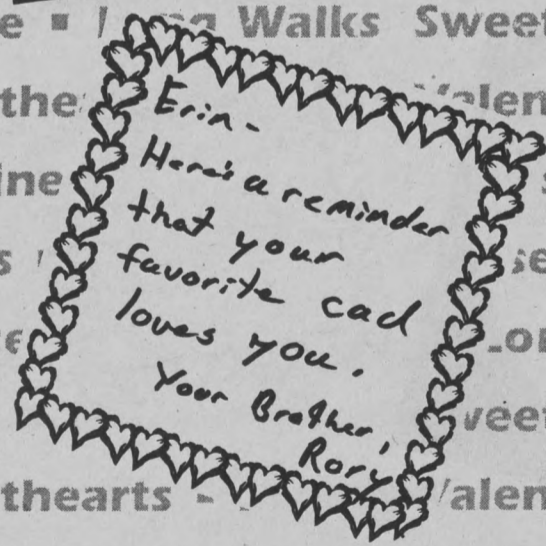 Walks Sweet
the
Erin-
Here's a reminder
that your
favorite cad
loves you.
Your Brother,
Rory
thearts